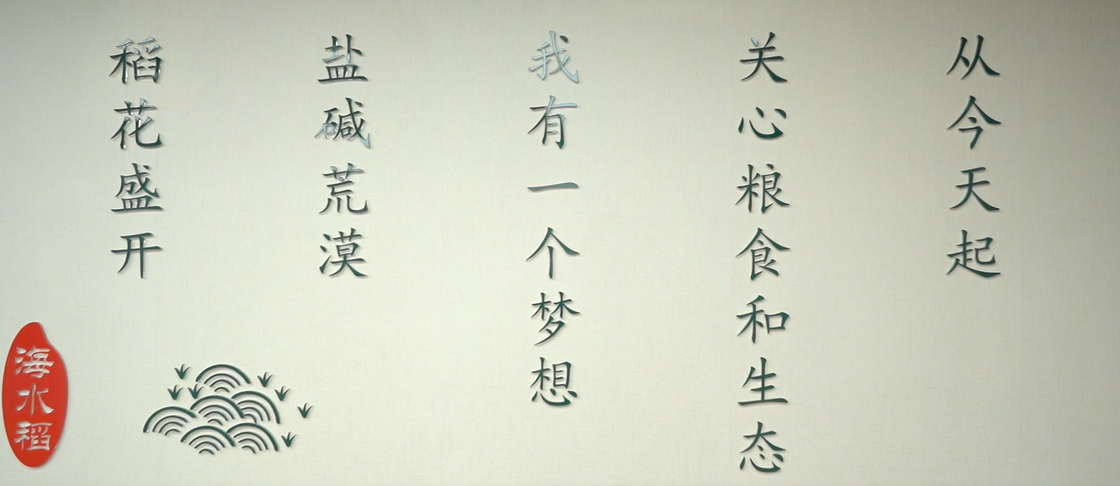 从今天起
关心粮食和生态
我有一个梦想
盐碱荒漠
稻花盛开
海水稻